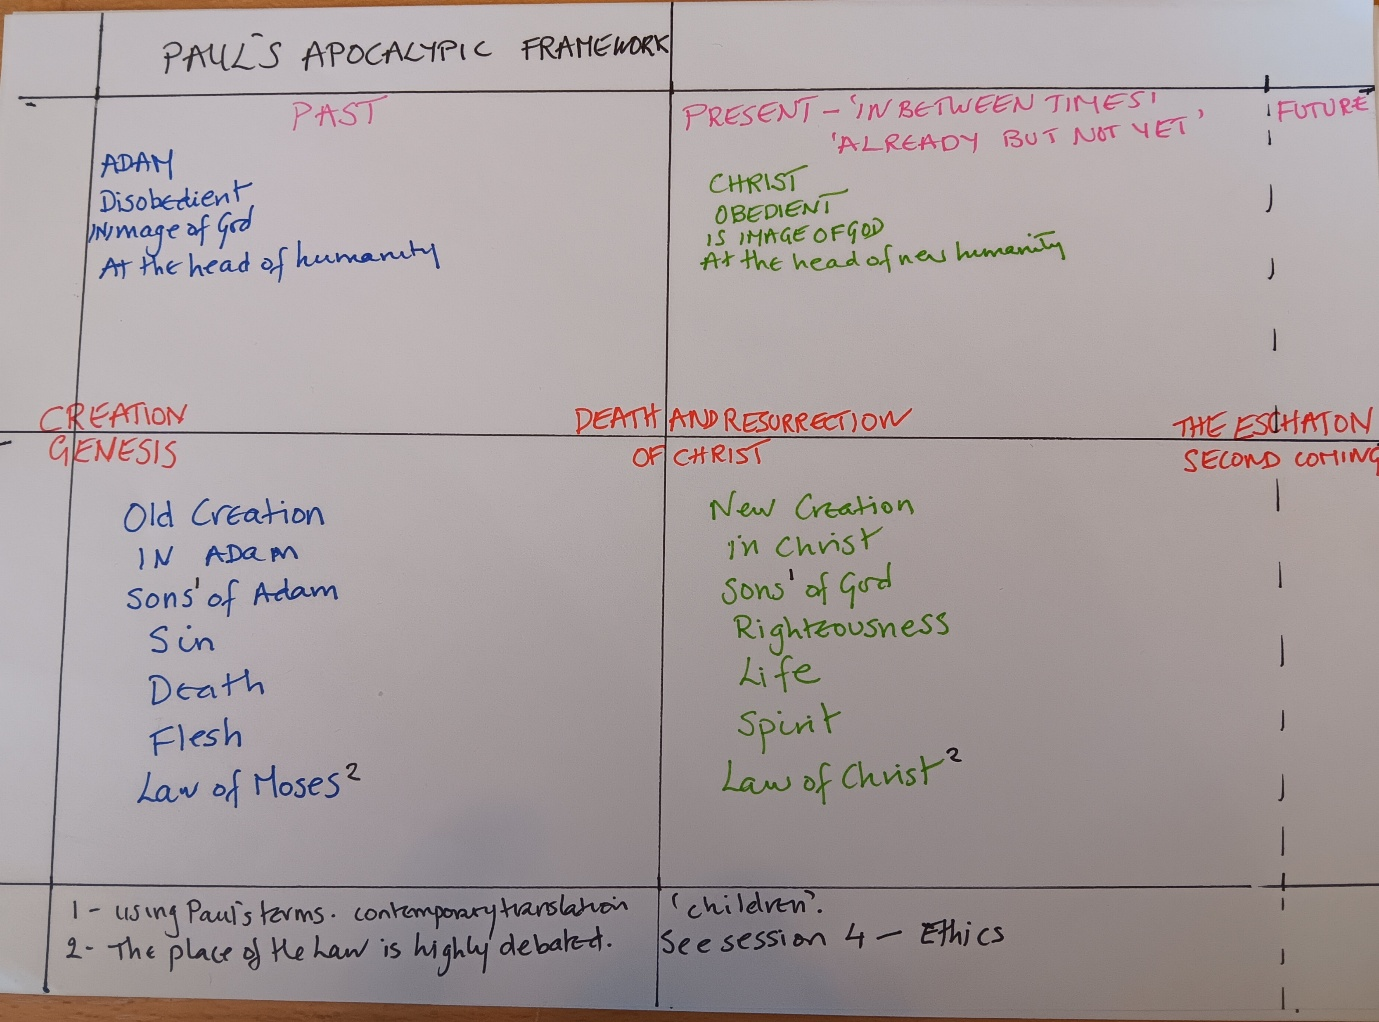 PAUL'S APOCALYPIC FRAMEWORK
PAST
PRESENT - 'IN BETWEEN TIMES'
'ALREADY BUT NOT YET'
FUTURE
ADAM
Disobedient
IN image of God
At the head of humanity
CHRIST
OBEDIENT
IS IMAGE OF GOD
At the head of new humanity
CREATION
GENESIS
DEATH AND RESURRECTION
OF CHRIST
THE ESCHATON
SECOND COMING
Old Creation
IN ADam
Sons¹ of Adam
Sin
Death
Flesh
Law of Moses²
New Creation
in Christ
Sons¹ of God
Righteousness
Life
Spirit
Law of Christ²
1 - using Paul's terms. contemporary translation 'children'.
2 - The place of the Law is highly debated. See session 4 - Ethics